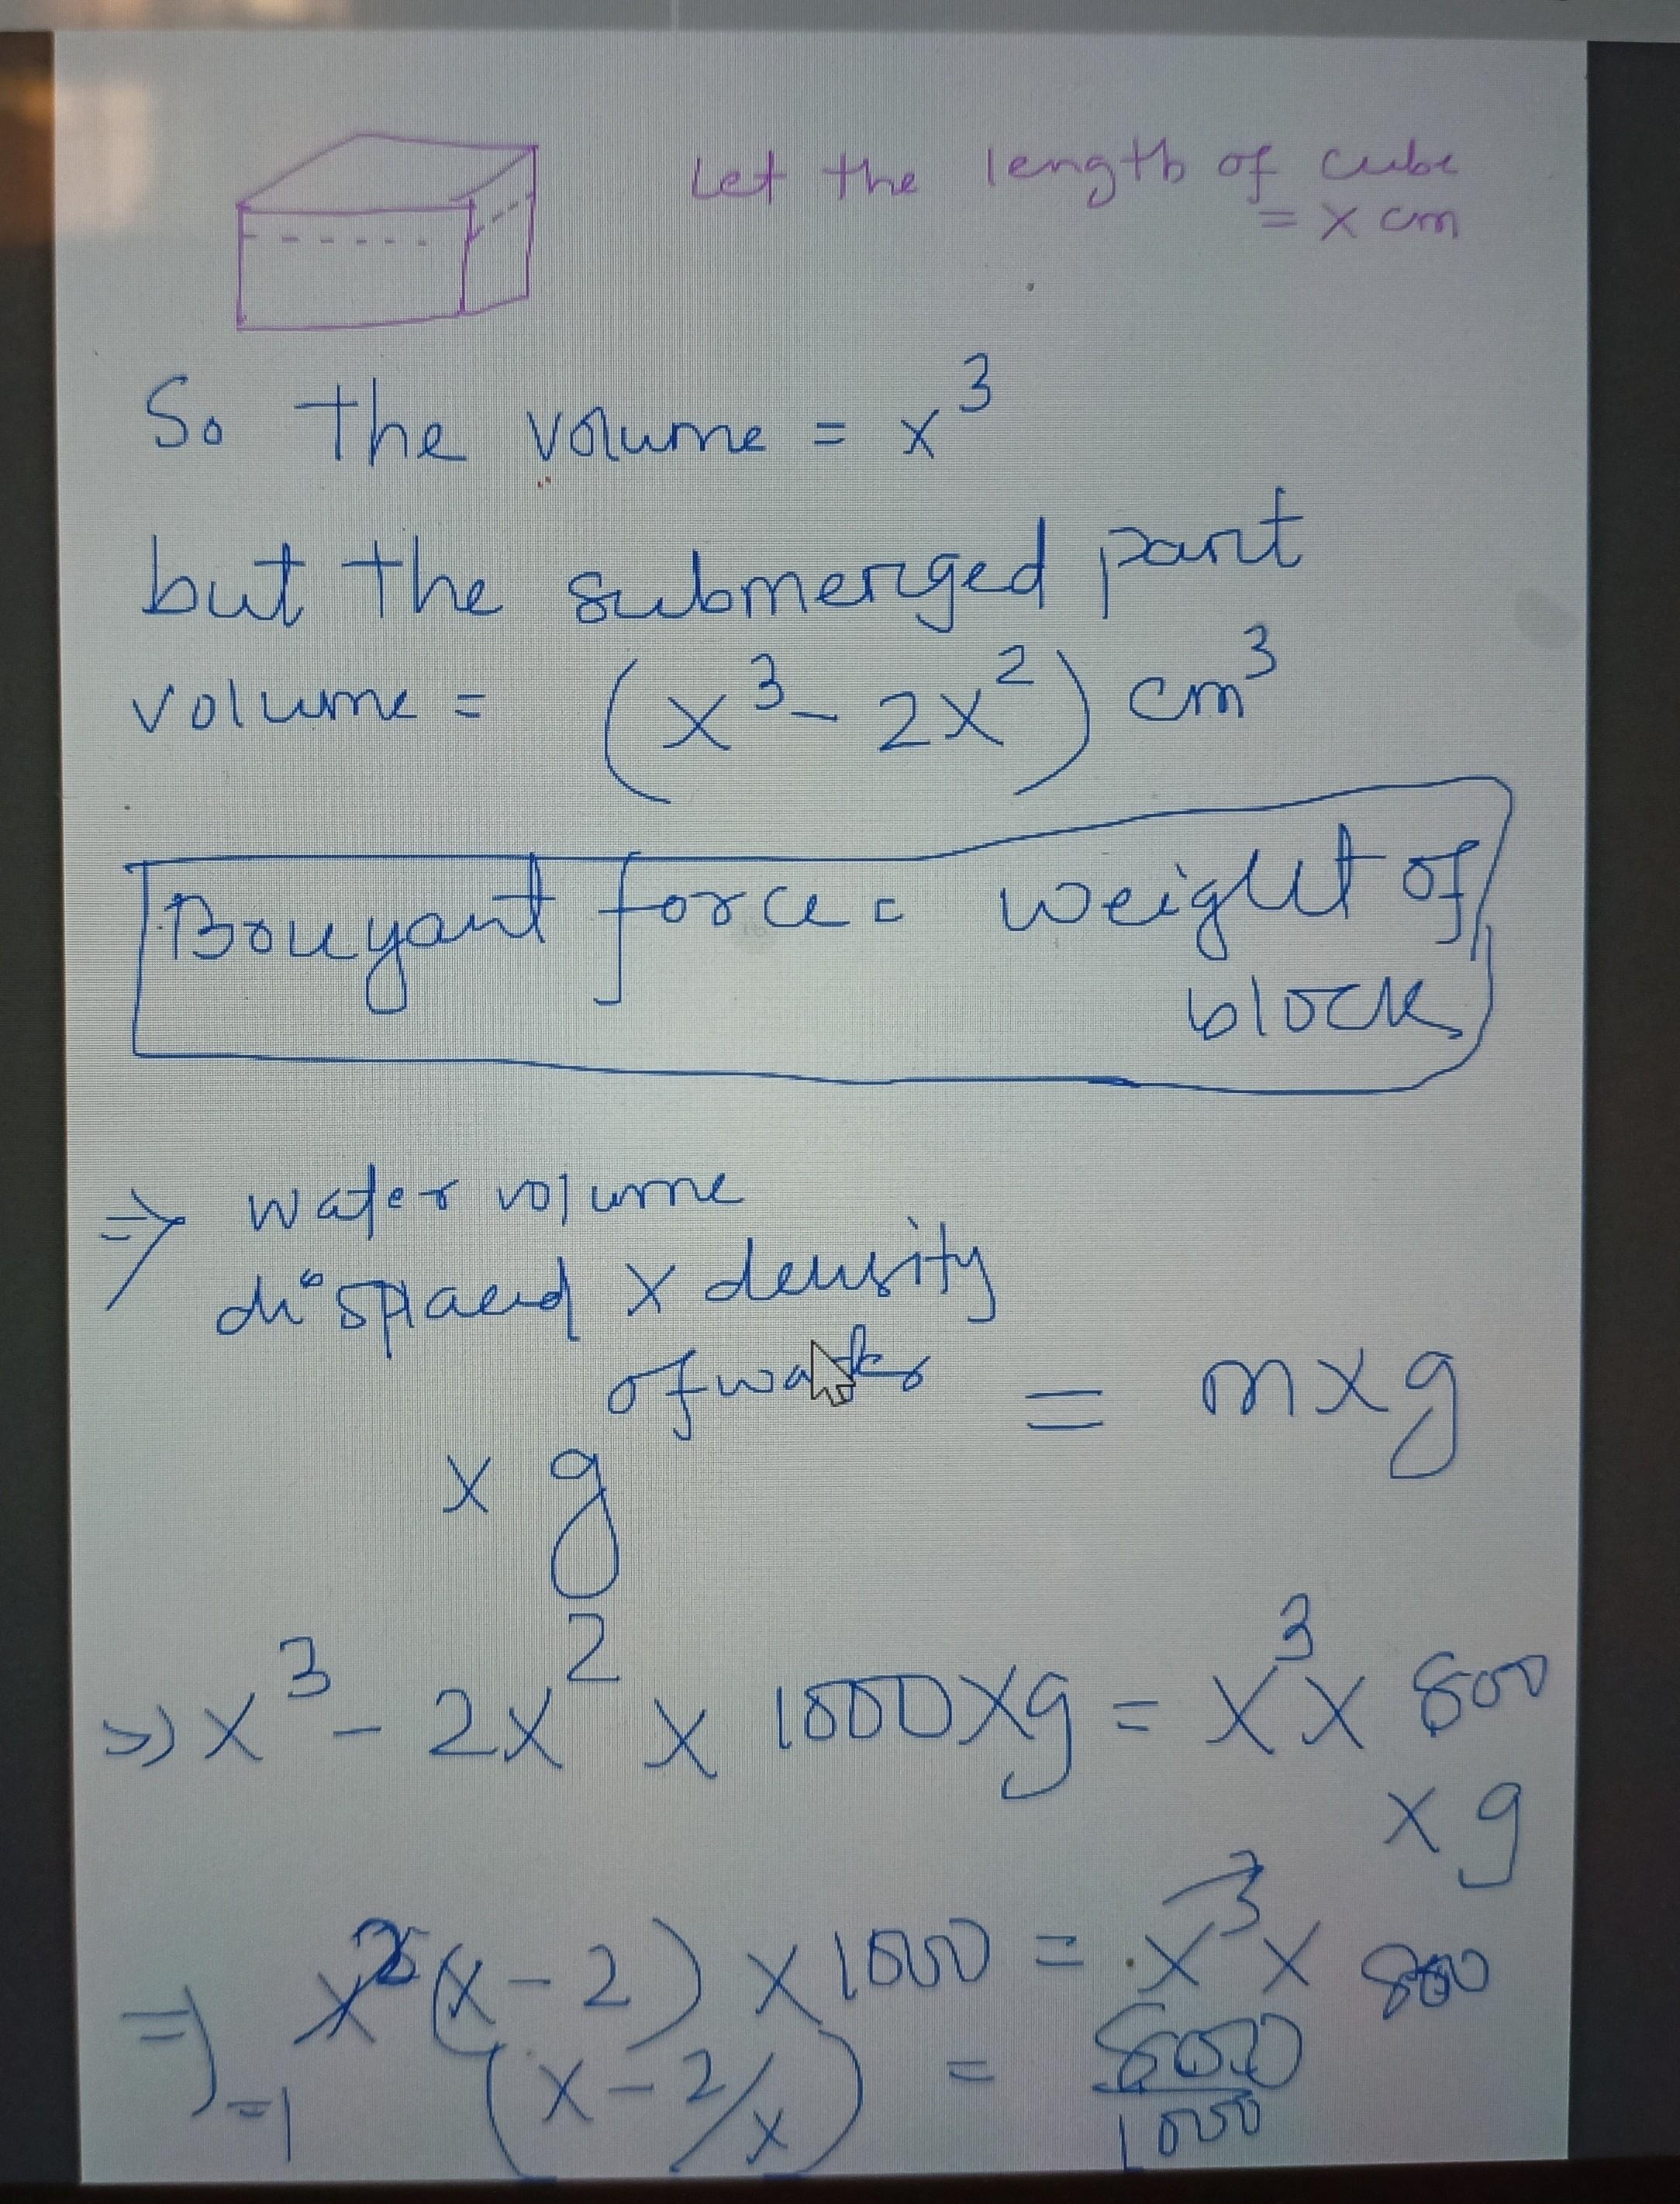 Let the length of cube
= x cm
So the volume = x³
but the submerged part
volume = (x³ - 2x²) cm³
Bouyant force = weight of
block
⇒ water volume
displaced x density
of water = m x g
x g
⇒ x³ - 2x² x 1000 x g = x³ x 800
x g
⇒ x²(x - 2) x 1000 = x³ x 800
(x - 2/x) = 800/1000